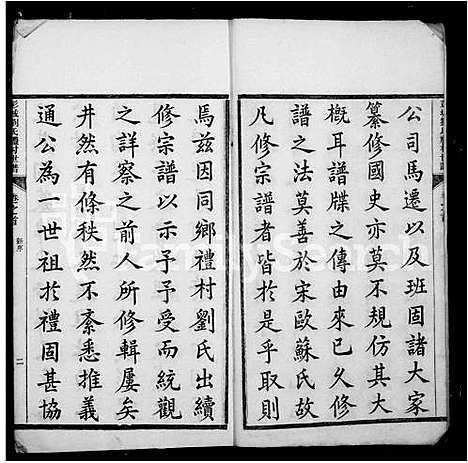 公司馬遷以及班固諸大家
纂修國史亦莫不規仿其大
概耳譜牒之傳由來已久修
譜之法莫善於宋歐蘇氏故
凡修宗譜者皆於是乎取則
焉茲因同鄉禮村劉氏出續
修宗譜以示予予受而統觀
之詳察之前人所修輯屢矣
井然有條秩然不紊悉推義
通公為一世祖於禮固甚協
彭城劉氏禮村世譜 卷之首 新序 二
FamilySearch